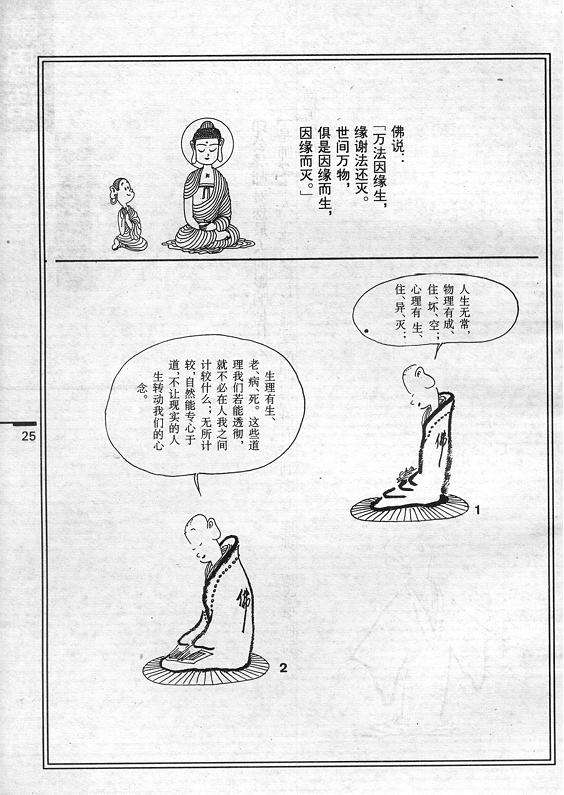 佛说：
「万法因缘生，
缘谢法还灭。
世间万物，
俱是因缘而生，
因缘而灭。」
人生无常，
物理有成、
住、坏、空；
心理有生、
住、异、灭；
1
生理有生、
老、病、死。这些道
理我们若能透彻，
就不必在人我之间
计较什么；无所计
较，自然能专心于
道，不让现实的人
生转动我们的心
念。
佛
佛
2
25